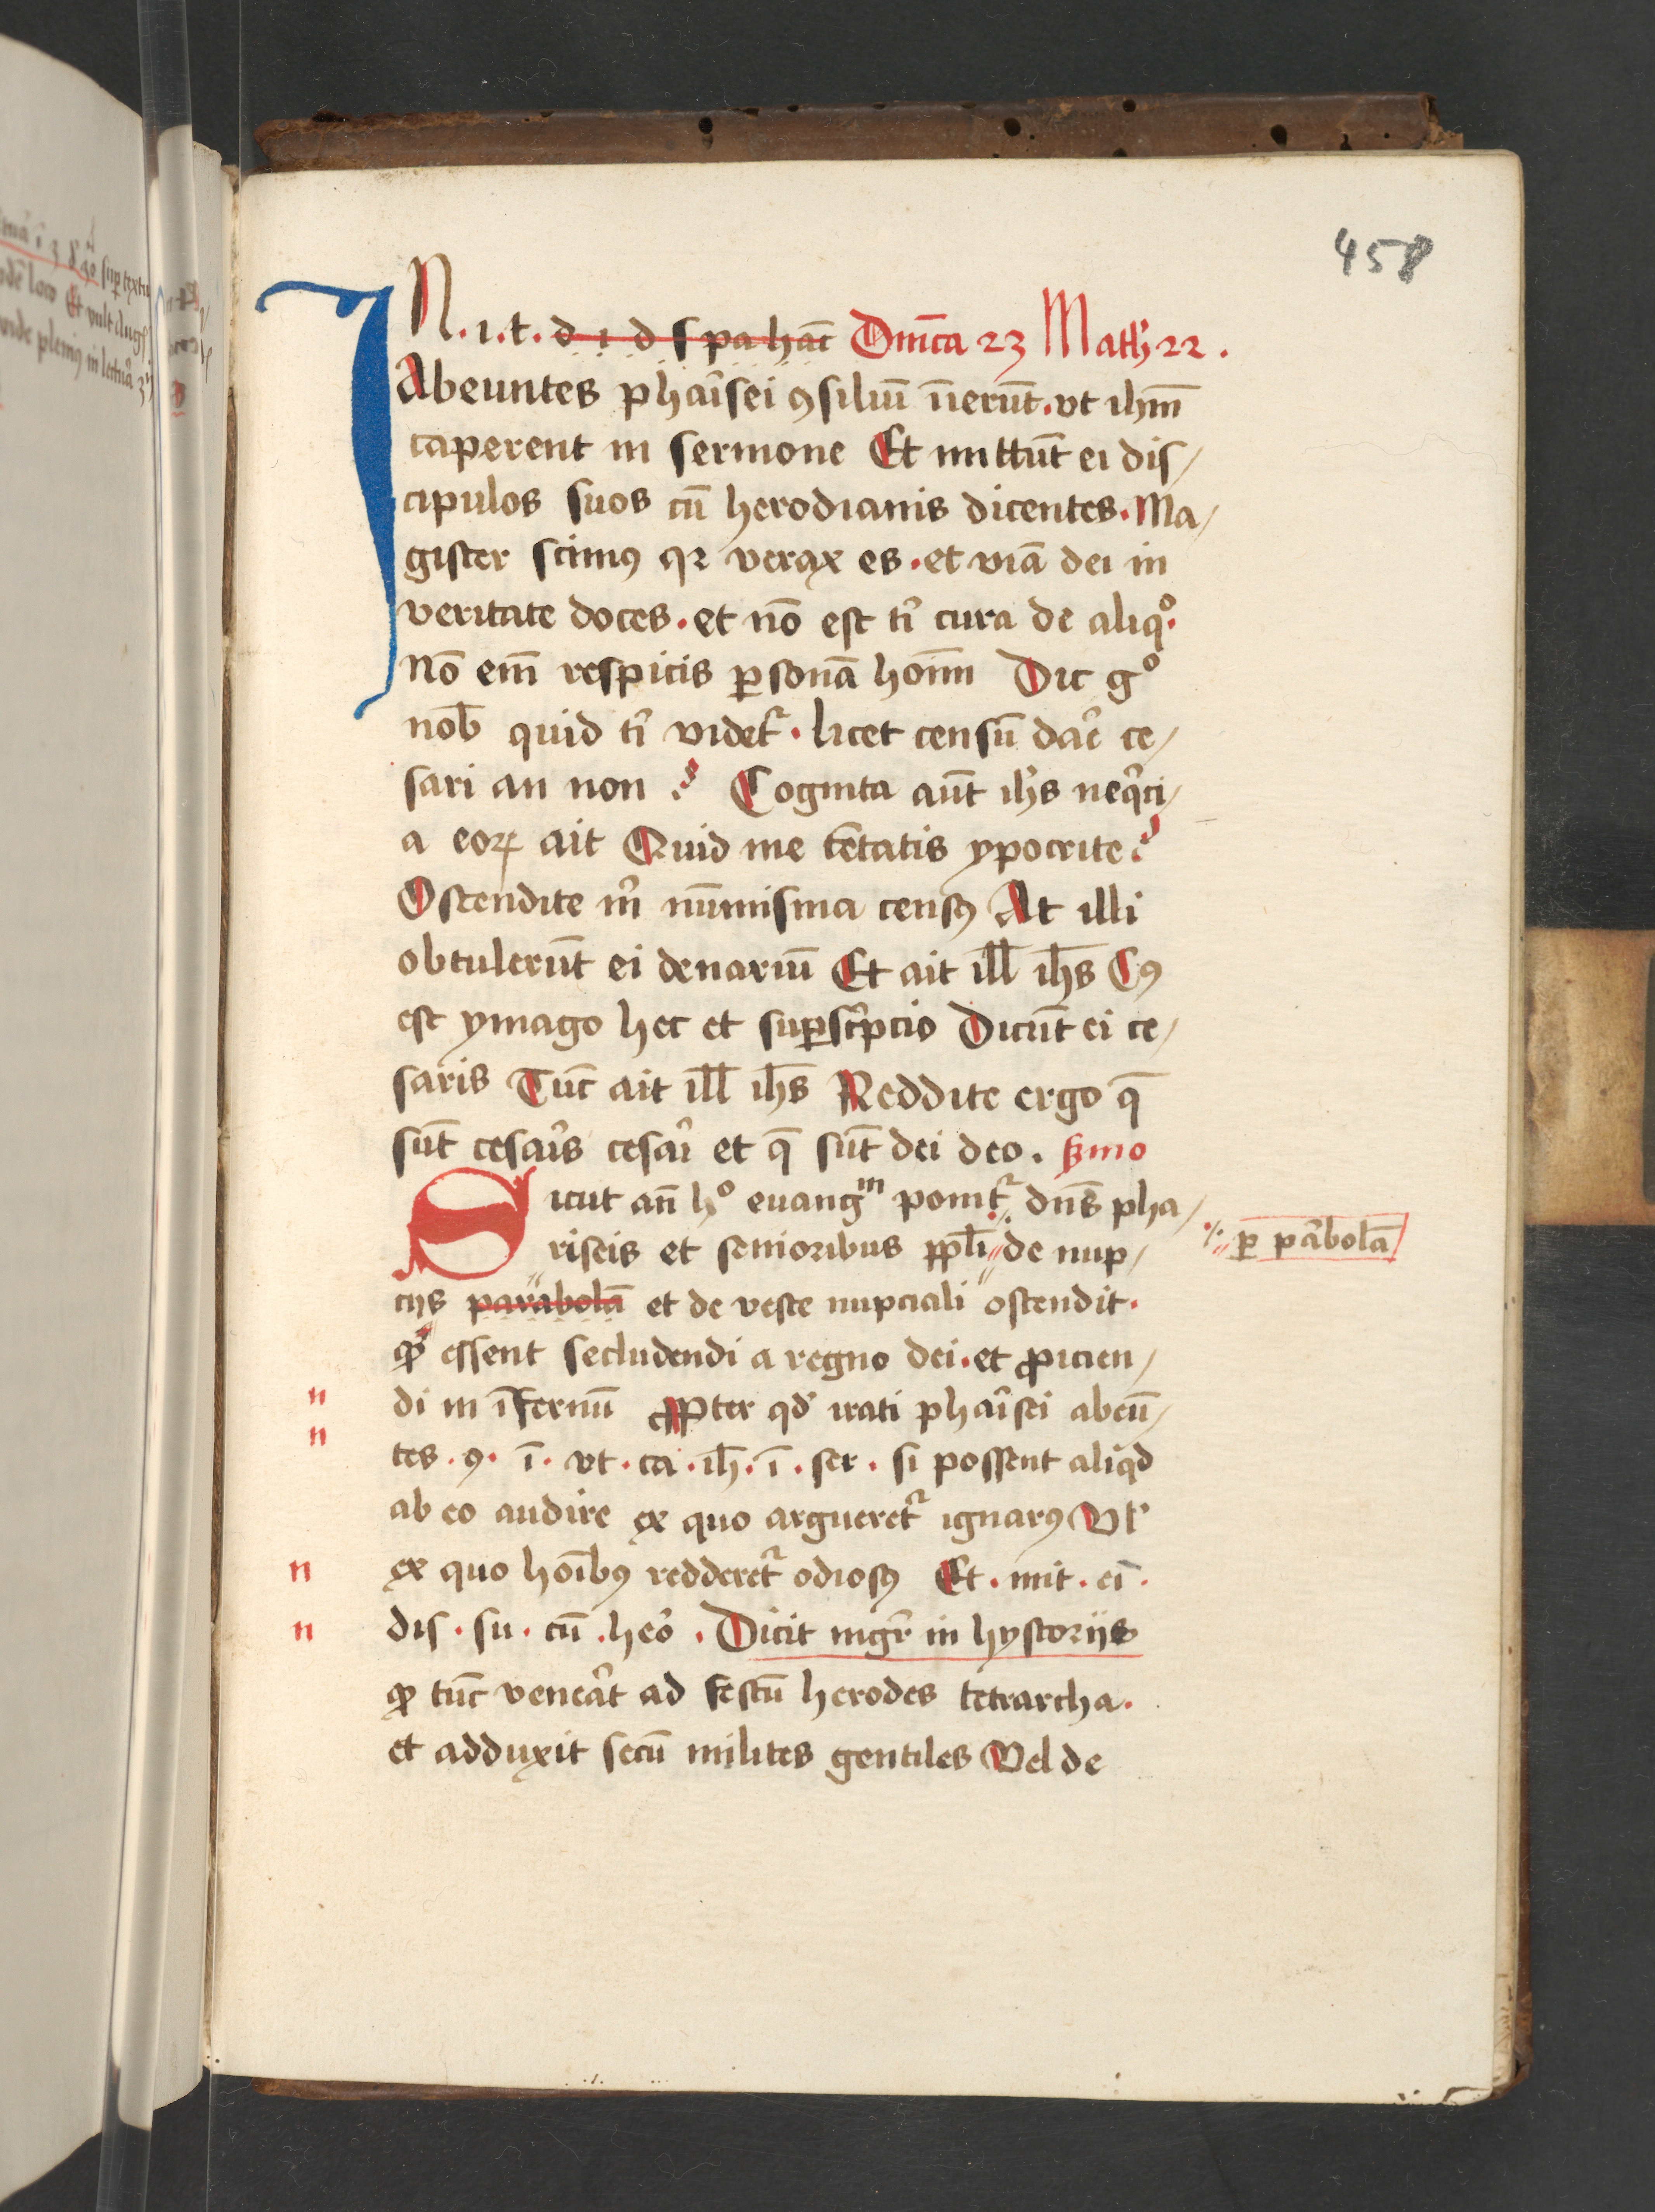 458
IN . i . t . d i d s pa hāc Dn̄ica 23 Math 22 .
Abeuntes phaīsei ꝯsiliū īierūt . vt ihm̄
caperent in sermone Et mittūt ei dis/
cipulos suos cū herodianis dicentes . Ma/
gister scimꝰ qꝛ verax es . et viā dei in
veritate doces . et nō est tⁱ cura de aliqº .
nō em̄ respicis ꝑsonā hoīm Dic gº
nob̄ quid tⁱ videt᷑ . licet censū daꝛ̄ ce/
sari an non ? Cognita aūt ihs̄ neqⁱci/
a eoꝝ ait Quid me tētatis ypocrite ?
Ostendite mⁱ nūmisma censꝰ At illi
obtulerūt ei denariū Et ait ill̄ ihs̄ Cꝰ
est ymago hec et suꝑscⁱpcio Dicūt ei ce/
saris Tūc ait ill̄ ihs̄ Reddite ergo q̄
sūt cesaīs cesaī et q̄ sūt dei deo . ẞmo
Sicut an̄ hº euangᵐ ponit᷑ dn̄s pha/
riseis et senioribus ppl̄i de nup/
ꝑ pābolā
cijs parabolā et de veste nupciali ostendit .
ꝙ essent secludendi a regno dei . et ꝓicien/
n di in īfernū Ꝓpter qd̕ irati phaīsei abeū/
n tes . ꝯ . ī . vt . ca . ih̄ . ī . ser . si possent aliqd
ab eo audire ex quo argueret᷑ ignarꝰ Vl̕
n ex quo hoībꝰ redderet᷑ odiosꝰ Et . mit . ei .
n dis . su . cū . heō . Dicit mgr̄ in hystorijs
ꝙ tūc veneāt ad festū herodes tetrarcha .
et adduxit secū milites gentiles Vel de